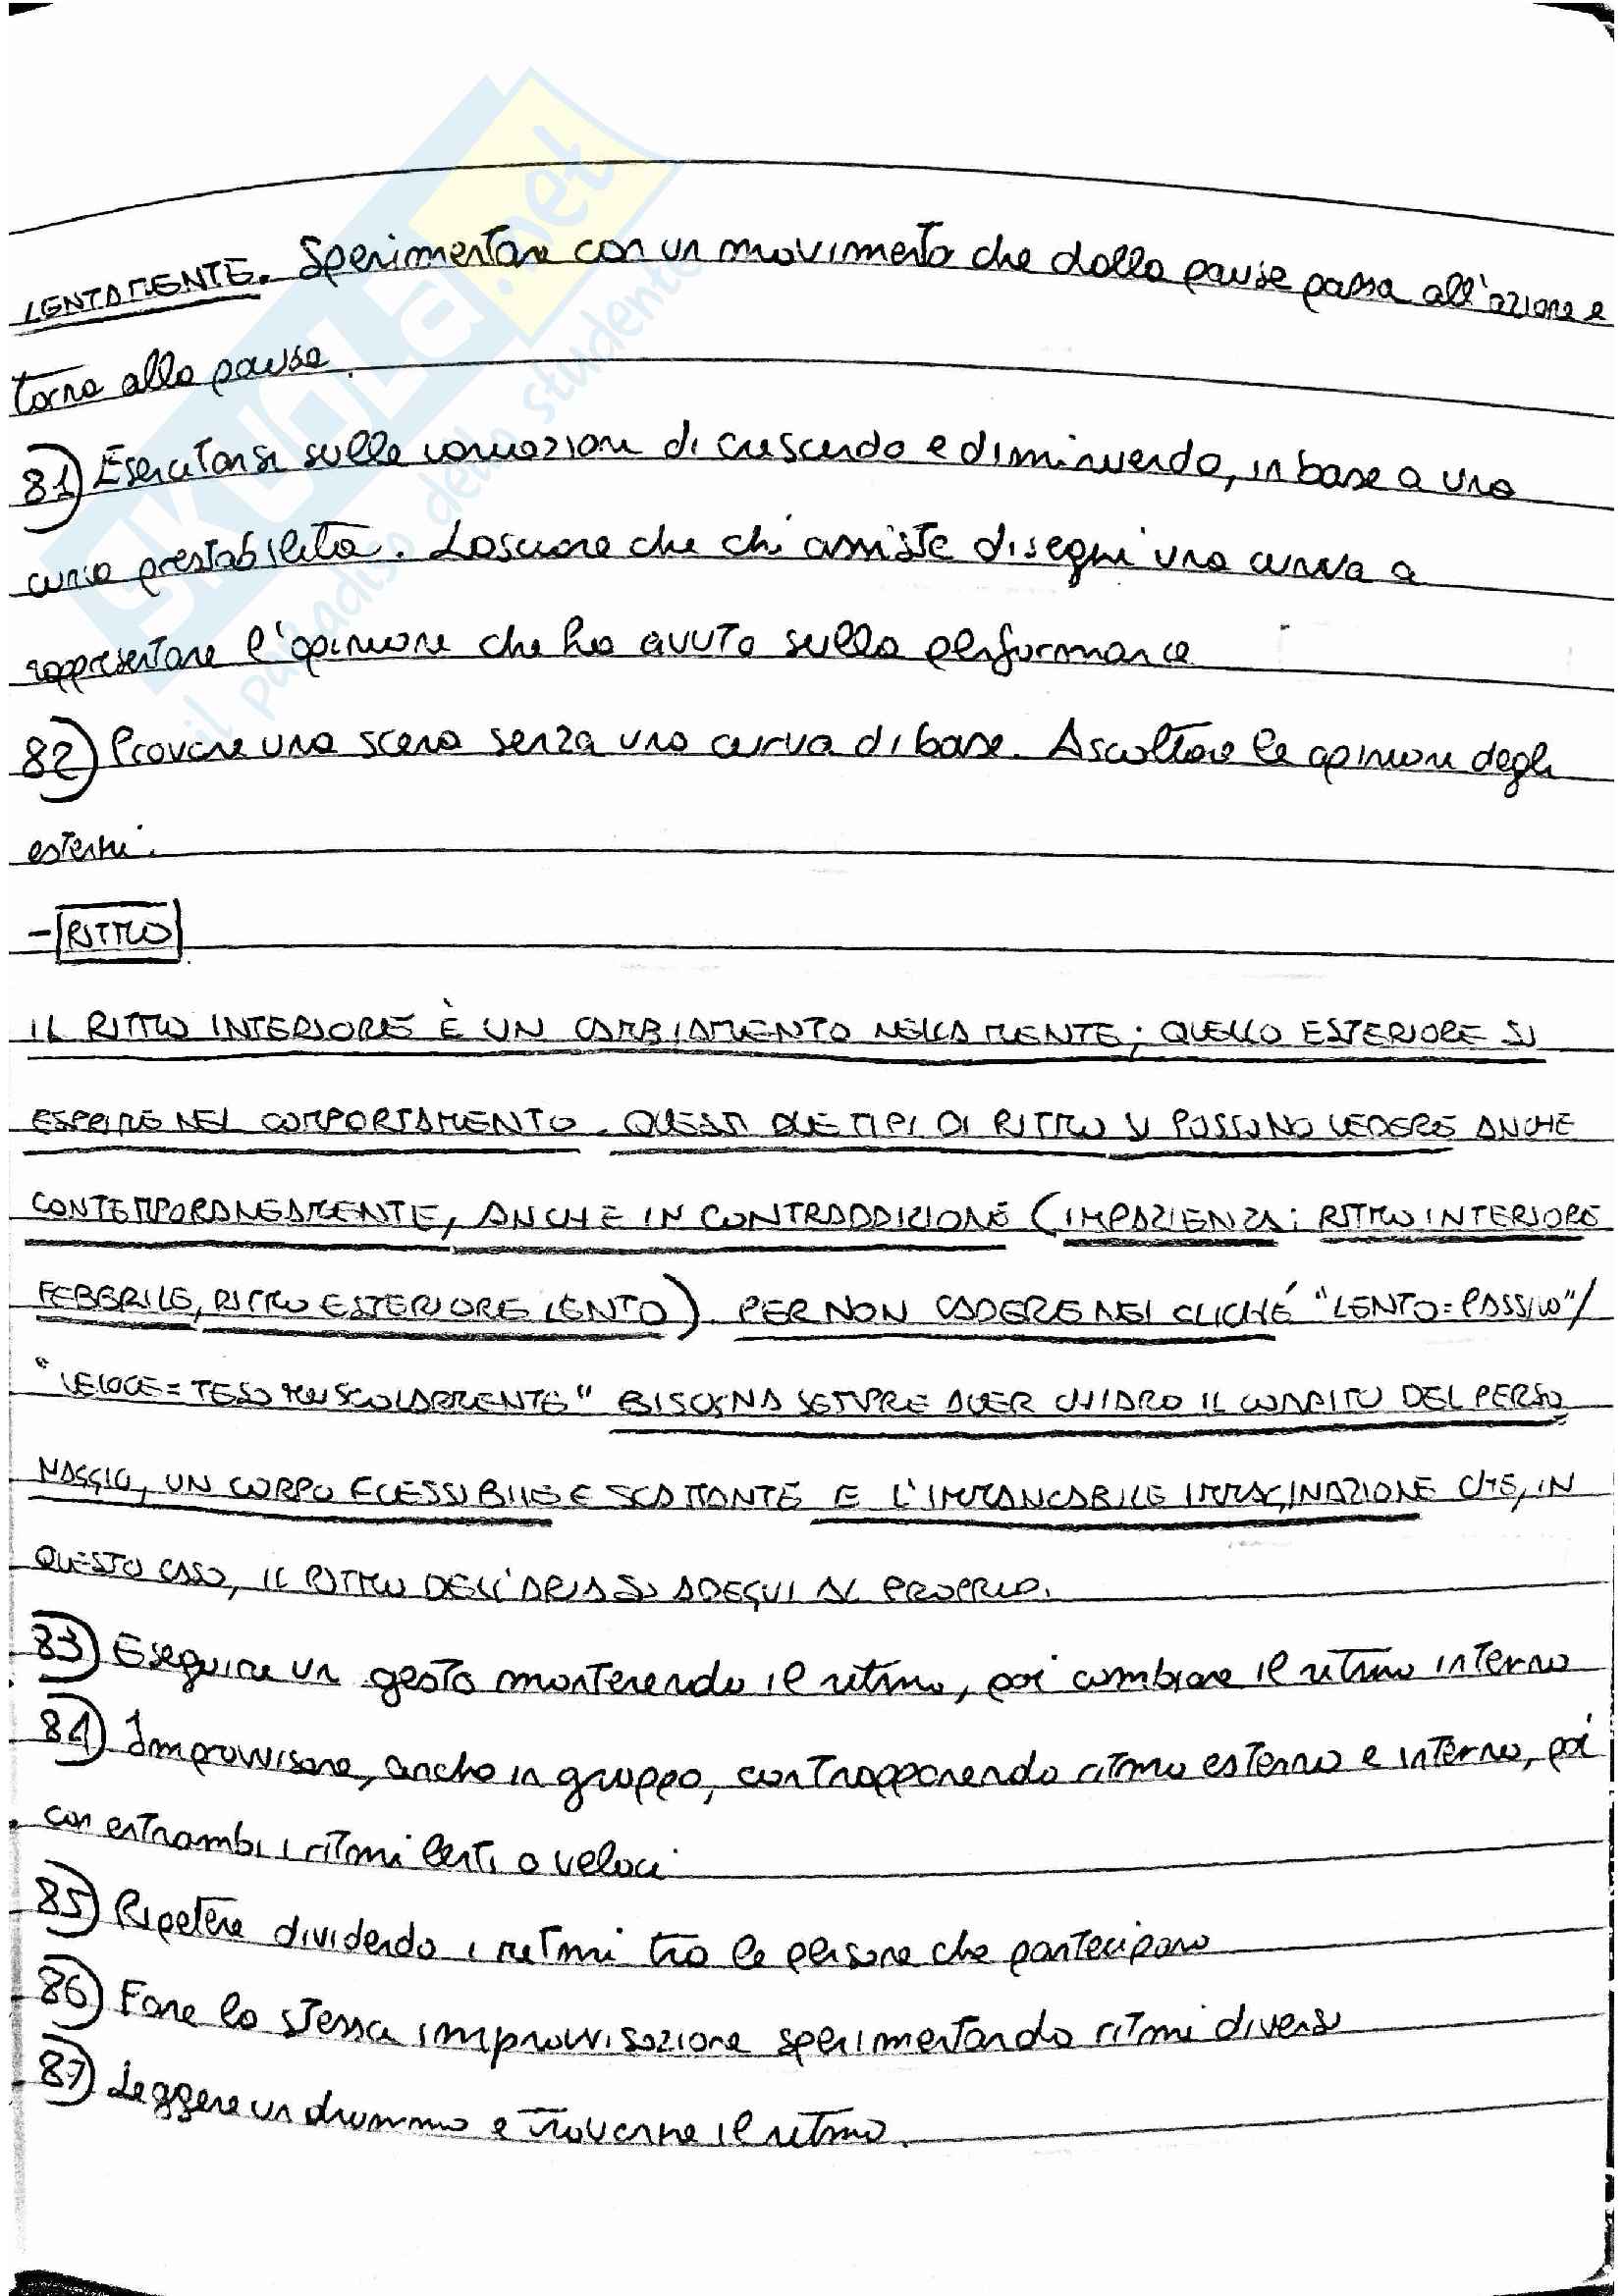 LENTAMENTE. Sperimentare con un movimento che dalla pausa passa all'azione e
torna alla pausa.
81) Esercitarsi sulle variazioni di crescendo e diminuendo, in base a una
curva prestabilita. Lasciare che chi assiste disegni una curva a
rappresentare l'opinione che ha avuto sulla performance
82) Provare una scena senza una curva di base. Ascoltare le opinioni degli
esterni.
- RITMO
IL RITMO INTERIORE È UN CAMBIAMENTO NELLA MENTE; QUELLO ESTERIORE SI
ESPRIME NEL COMPORTAMENTO. QUESTI DUE TIPI DI RITMO SI POSSONO VEDERE ANCHE
CONTEMPORANEAMENTE, ANCHE IN CONTRADDIZIONE (IMPAZIENZA: RITMO INTERIORE
FEBBRILE, RITMO ESTERIORE LENTO). PER NON CADERE NEI CLICHÉ "LENTO=PASSIVO"/
"VELOCE=TESO MUSCOLARMENTE" BISOGNA SEMPRE AVER CHIARO IL COMPITO DEL PERSO
NAGGIO, UN CORPO FLESSIBILE E SCATTANTE E L'IMMANCABILE IMMAGINAZIONE CHE, IN
QUESTO CASO, IL RITMO DELL'ARIA SI ADEGUI AL PROPRIO.
83) Eseguire un gesto mantenendo il ritmo, poi cambiare il ritmo interno
84) Improvvisare, anche in gruppo, contrapponendo ritmo esterno e interno, poi
con entrambi i ritmi lenti o veloci
85) Ripetere dividendo i ritmi tra le persone che partecipano
86) Fare la stessa improvvisazione sperimentando ritmi diversi
87) Leggere un dramma e trovarne il ritmo.
SKUOLA.net
il paradiso dello studente